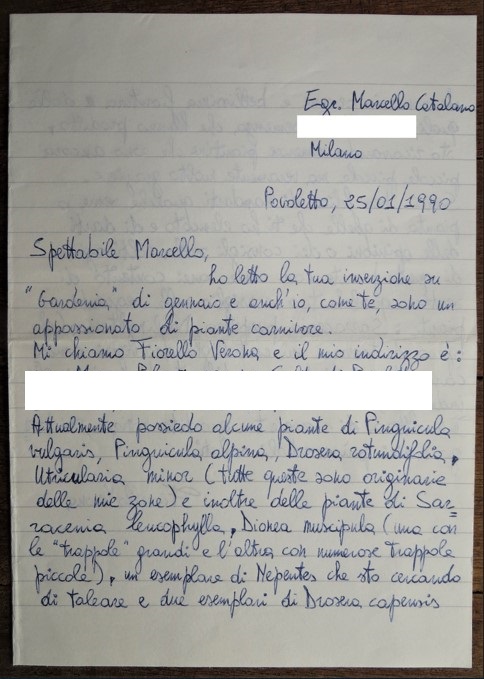 Egr. Marcello Catalano
Milano
Povoletto, 25/01/1990
Spettabile Marcello,
ho letto la tua inserzione su
"Gardenia" di gennaio e anch'io, come te, sono un
appassionato di piante carnivore.
Mi chiamo Fiorello Verona e il mio indirizzo è:
Attualmente possiedo alcune piante di Pinguicula
vulgaris, Pinguicula alpina, Drosera rotundifolia,
Utricularia minor (tutte queste sono originarie
delle mie zone) e inoltre delle piante di Sar=
racenia leucophylla, Dionea muscipula (una con
le "trappole" grandi e l'altra con numerose trappole
piccole), un esemplare di Nepentes che sto cercando
di taleare e due esemplari di Drosera capensis